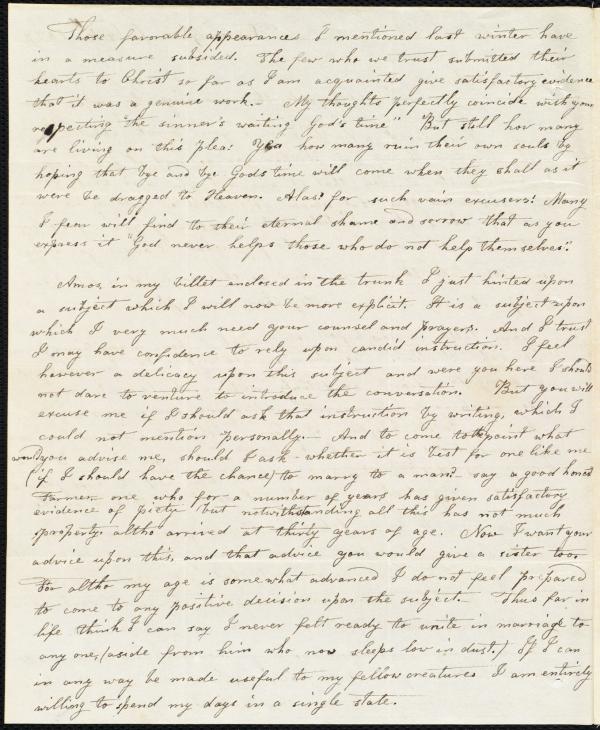 Those favorable appearances I mentioned last winter have
in a measure subsided. The few who we trust submitted their
hearts to Christ so far as I am acquainted give satisfactory evidence
that it was a genuine work.— My thoughts perfectly coincide with your
respecting "the sinner's waiting God's time" But still how many
are living on this plea! Yea how many ruin their own souls by
hoping that bye and bye Gods time will come when they shall as it
were be dragged to Heaven. Alas! for such vain excusers! Many
I fear will find to their eternal shame and sorrow that as you
express it "God never helps those who do not help themselves".
Amos, in my billet enclosed in the trunk I just hinted upon
a subject which I will now be more explicit. It is a subject upon
which I very much need your counsel and prayers. And I trust
I may have confidence to rely upon candid instruction. I feel
however a delicacy upon this subject and were you here I should
not dare to venture to introduce the conversation. But you will
excuse me if I should ask that instruction by writing, which I
could not mention personally.— And to come to the point what
would you advise me, should I ask—whether it is best for one like me
(if I should have the chance) to marry to a man?—say a good honest
Farmer—one who for a number of years has given satisfactory
evidence of piety but notwithstanding all this has not much
property: altho arrived at thirty years of age. Now I want your
advice upon this, and that advice you would give a sister too.
For altho my age is somewhat advanced I do not feel prepared
to come to any positive decision upon the subject.— Thus far in
life think I can say I never felt ready to unite in marriage to
any one, (aside from him who now sleeps low in dust.) If I can
in any way be made useful to my fellow creatures I am entirely
willing to spend my days in a single state.